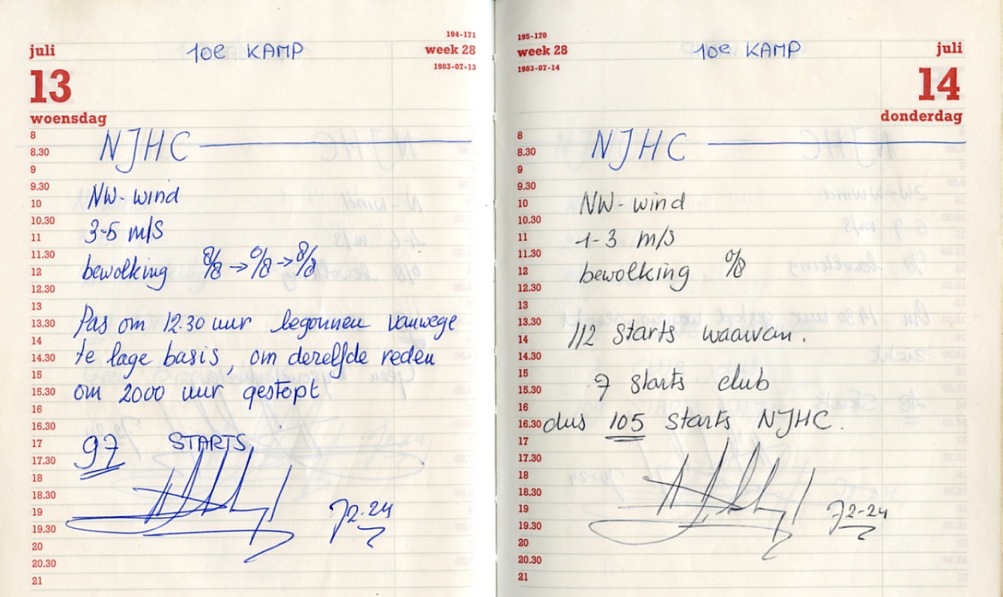 194-171
juli
10e KAMP
week 28
13
1983-07-13
woensdag
8
NJHC
8.30
9
9.30
NW-wind
10
10.30
3-5 m/s
11
11.30
bewolking 8/8 → 0/8 → 8/8
12
12.30
13
Pas om 12.30 uur begonnen vanwege
13.30
14
te lage basis, om dezelfde reden
14.30
15
om 2000 uur gestopt
15.30
16
16.30
17
97 STARTS
17.30
18
18.30
19
72-24
19.30
20
20.30
21
195-170
week 28
10e KAMP
juli
1983-07-14
14
donderdag
8
NJHC
8.30
9
9.30
NW-wind
10
10.30
1-3 m/s
11
11.30
bewolking 0/8
12
12.30
13
13.30
112 starts waarvan.
14
14.30
15
7 starts club
15.30
16
16.30
dus 105 starts NJHC.
17
17.30
18
18.30
19
72-24
19.30
20
20.30
21